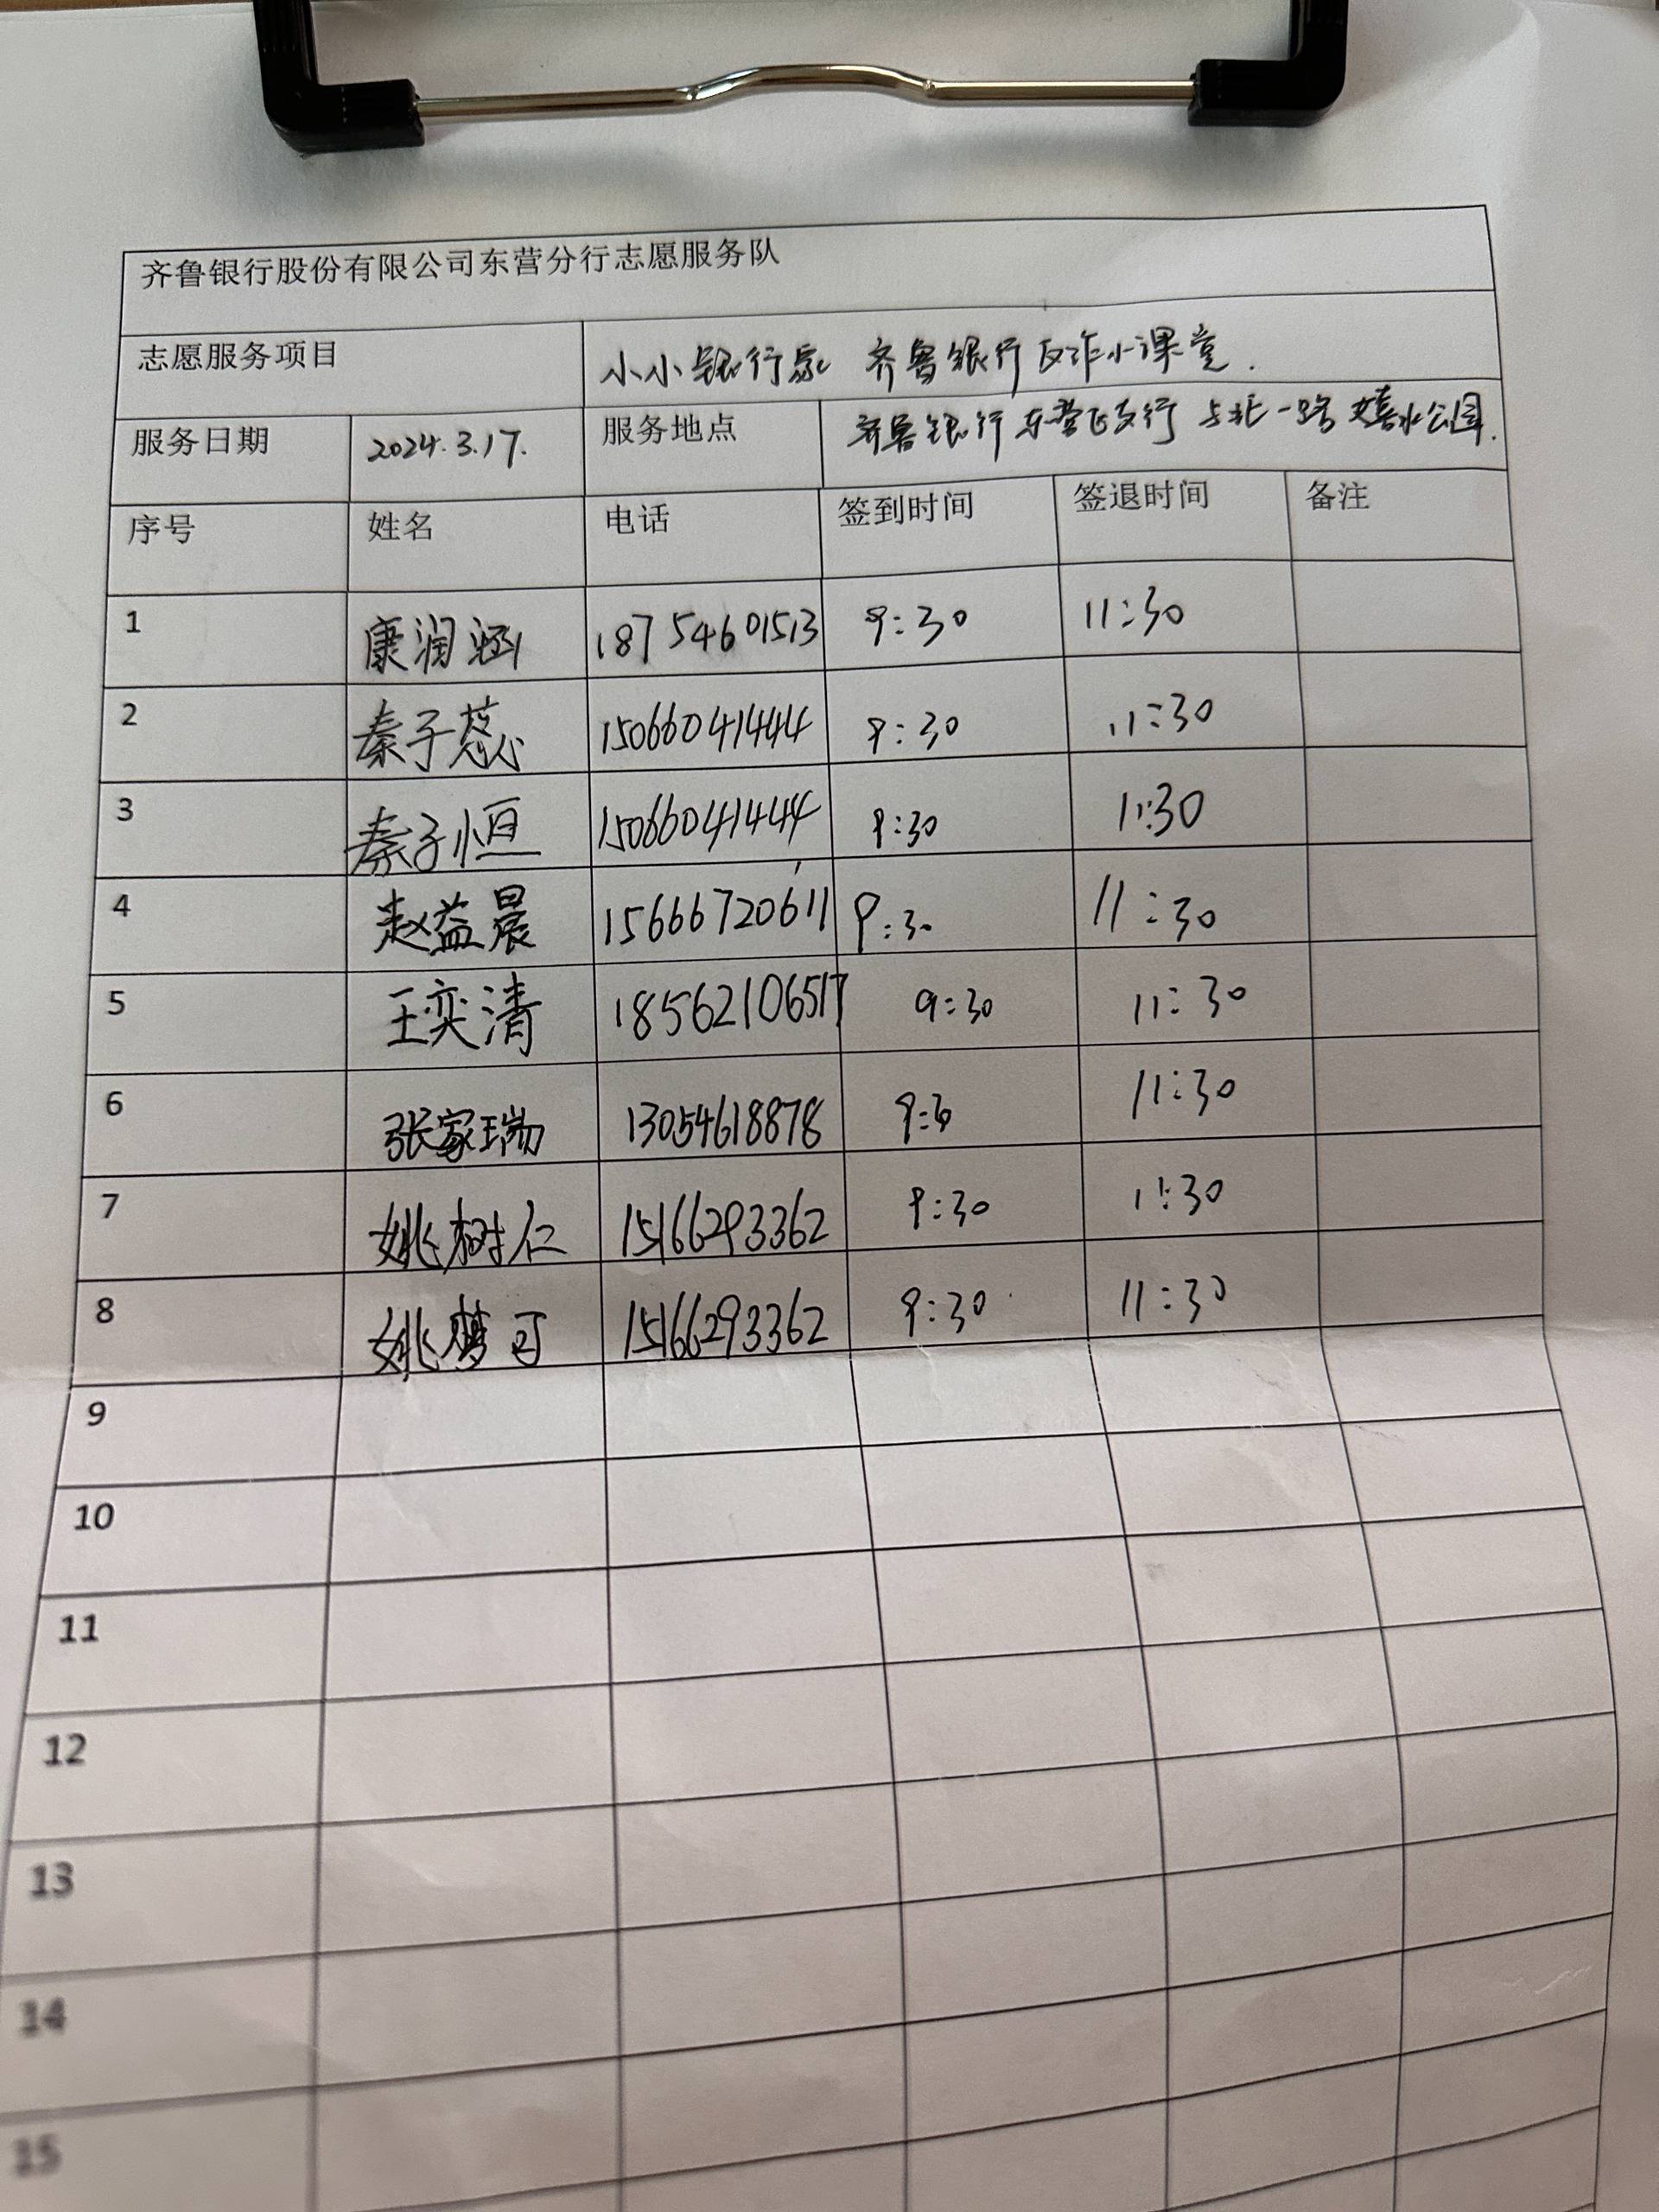 齐鲁银行股份有限公司东营分行志愿服务队
志愿服务项目 小小银行家 齐鲁银行反诈小课堂.
服务日期 2024.3.17. 服务地点 齐鲁银行东营 支行 与北一路 嬉水公园.
序号 姓名 电话 签到时间 签退时间 备注
1 康润涵 18754601513 9:30 11:30
2 秦子蕊 15066041444 9:30 11:30
3 秦子恒 15066041444 9:30 11:30
4 赵益晨 15666720611 9:30 11:30
5 王奕清 18562106517 9:30 11:30
6 张家瑞 13054618878 9:30 11:30
7 姚树仁 15166293362 9:30 11:30
8 姚梦可 15166293362 9:30 11:30
9
10
11
12
13
14
15